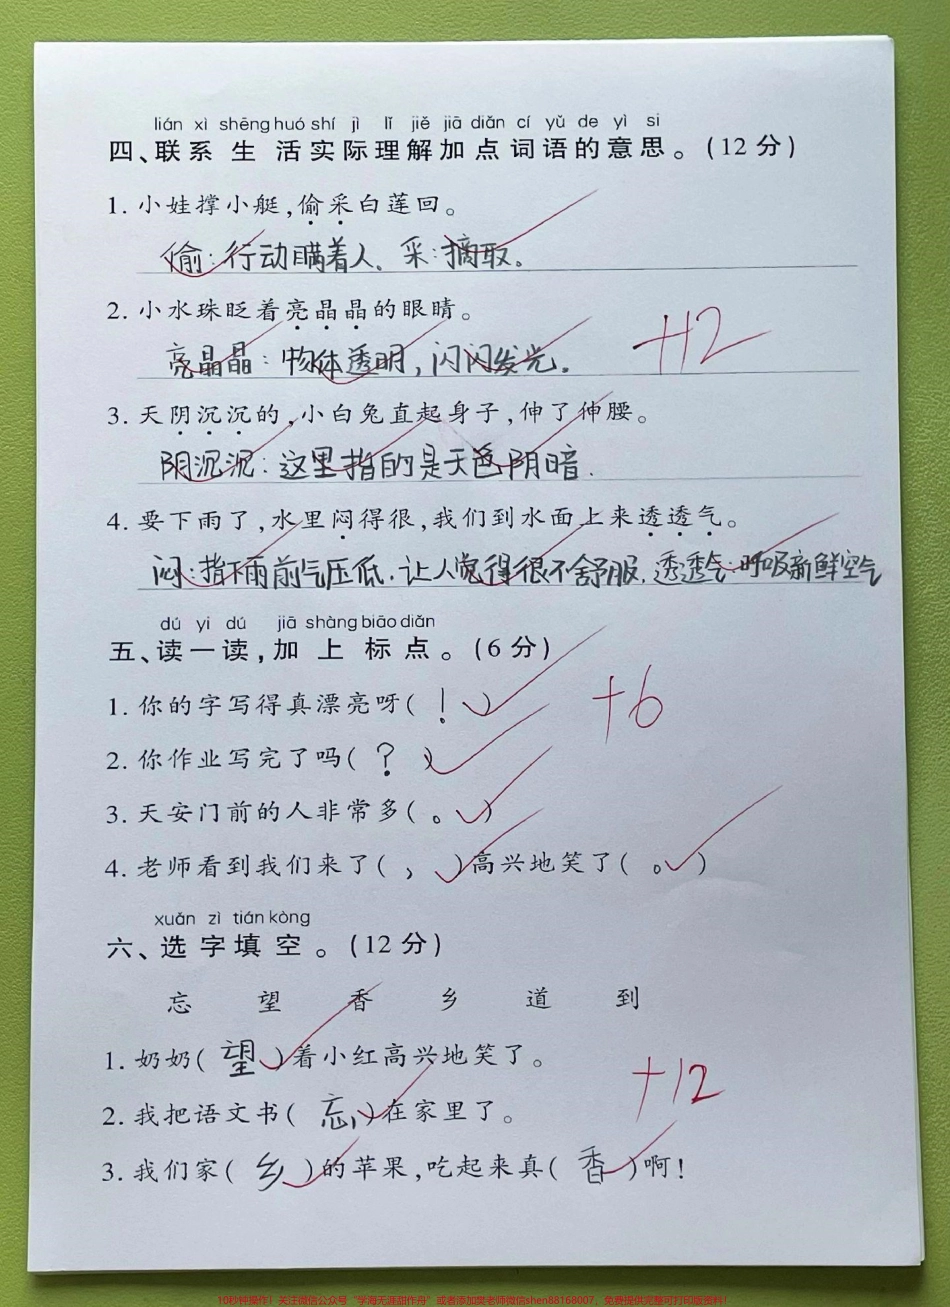 lián xì shēng huó shí jì lǐ jiě jiā diǎn cí yǔ de yì si
四、联系生活实际理解加点词语的意思。(12分)
1. 小娃撑小艇,偷采白莲回。
偷:行动瞒着人. 采:摘取。
2. 小水珠眨着亮晶晶的眼睛。
亮晶晶:物体透明,闪闪发光。
+12
3. 天阴沉沉的,小白兔直起身子,伸了伸腰。
阴沉沉:这里指的是天色阴暗.
4. 要下雨了,水里闷得很,我们到水面上来透透气。
闷:指下雨前气压低.让人觉得很不舒服.透透气:呼吸新鲜空气
dú yi dú jiā shàng biāo diǎn
五、读一读,加上标点。(6分)
1. 你的字写得真漂亮呀( ! )
+6
2. 你作业写完了吗( ? )
3. 天安门前的人非常多( 。 )
4. 老师看到我们来了( , )高兴地笑了( 。 )
xuǎn zì tián kòng
六、选字填空。(12分)
忘 望 香 乡 道 到
1. 奶奶( 望 )着小红高兴地笑了。
+12
2. 我把语文书( 忘 )在家里了。
3. 我们家( 乡 )的苹果,吃起来真( 香 )啊!
10秒钟操作!关注微信公众号"学海无涯甜作舟"或者添加樊老师微信shen88168007,免费提供完整可打印版资料!